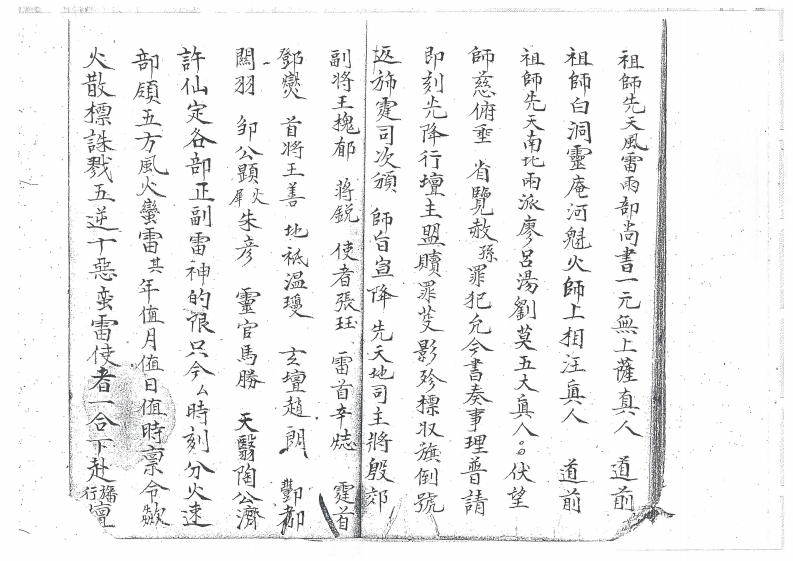 祖師先天風雷雨部尚書一元無上薩真人 道前
祖師白洞靈庵河魁火師上相汪真人 道前
祖師先天南北雨派廖呂湯劉莫五大真人 伏望
師慈俯垂 省覽赦孫罪犯允今書奏事理普請
即刻光降行壇主盟贖罪芟影殄標収旗倒號
返斾霆司次頒 師旨宣降 先天地司主將殷郊
副將王槐郁 蔣銳 使者張珏 雷首辛㷓 霆首
鄧燮 首將王善 地祇溫瓊 玄壇趙朗 酆都
関羽 邹公顕 火犀朱彦 靈官馬勝 天醫陶公濟
許仙定各部正副雷神的限只今厶時刻分火速
部領五方風火蠻雷其年值月值日值時禀令欻
火散標誅戮五逆十惡蛮雷使者一合下赴旛行壇